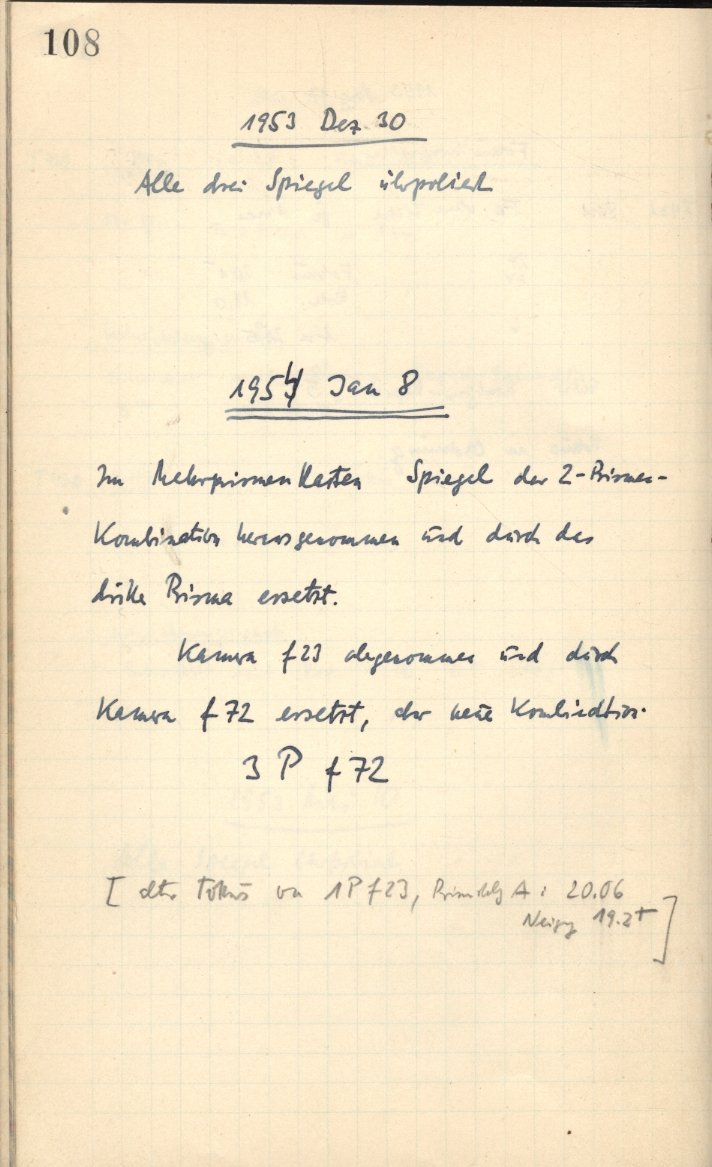 108
1953 Dez 30
Alle drei Spiegel überpoliert
1954 Jan 8
Im Mehrprismenkasten Spiegel der 2-Prismen-
Kombination herausgenommen und durch das
dritte Prisma ersetzt.
Kamera f23 abgenommen und durch
Kamera f72 ersetzt, der neue Kombination.
3 P f72
[ alter Fokus von 1P f23, A: 20.06
Neigg 19.2+ ]